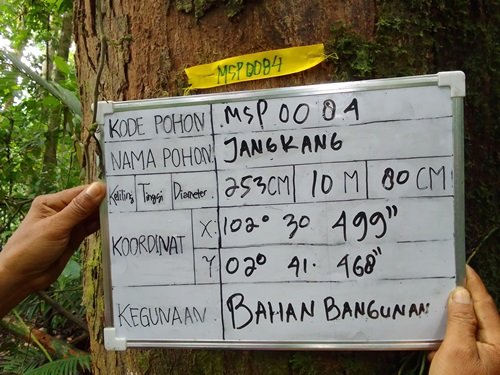 MSP0084
KODE POHON MSP 00 84
NAMA POHON JANGKANG
Keliling Tinggi Diameter 253CM 10 M 80 CM
KOORDINAT X: 102° 30 499"
Y: 02° 41. 468"
KEGUNAAN BAHAN BANGUNAN